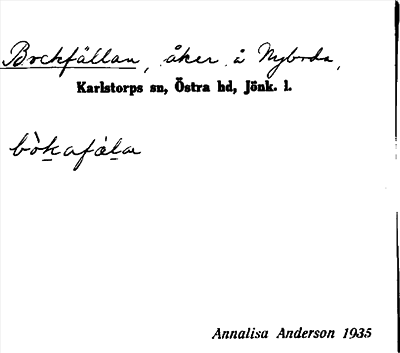 Bockfällan, åker å Nyboda,
Karlstorps sn, Östra hd, Jönk. l.
bòkafàla
Annalisa Anderson 1935